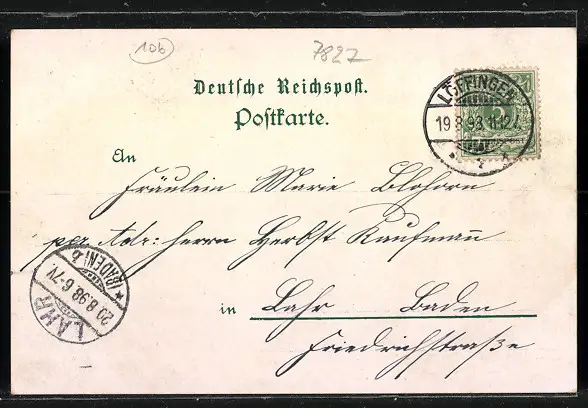 10b
7827
Deutsche Reichspost.
Postkarte.
LÖFFINGEN
19 8.98 11-12V
An
Fräulein Marie Blohorn
per Adr: Herrn Herbst Kaufmann
(BADEN) b
20.8.98.6-7V
LAHR
in Lahr Baden
Friedrichstraße